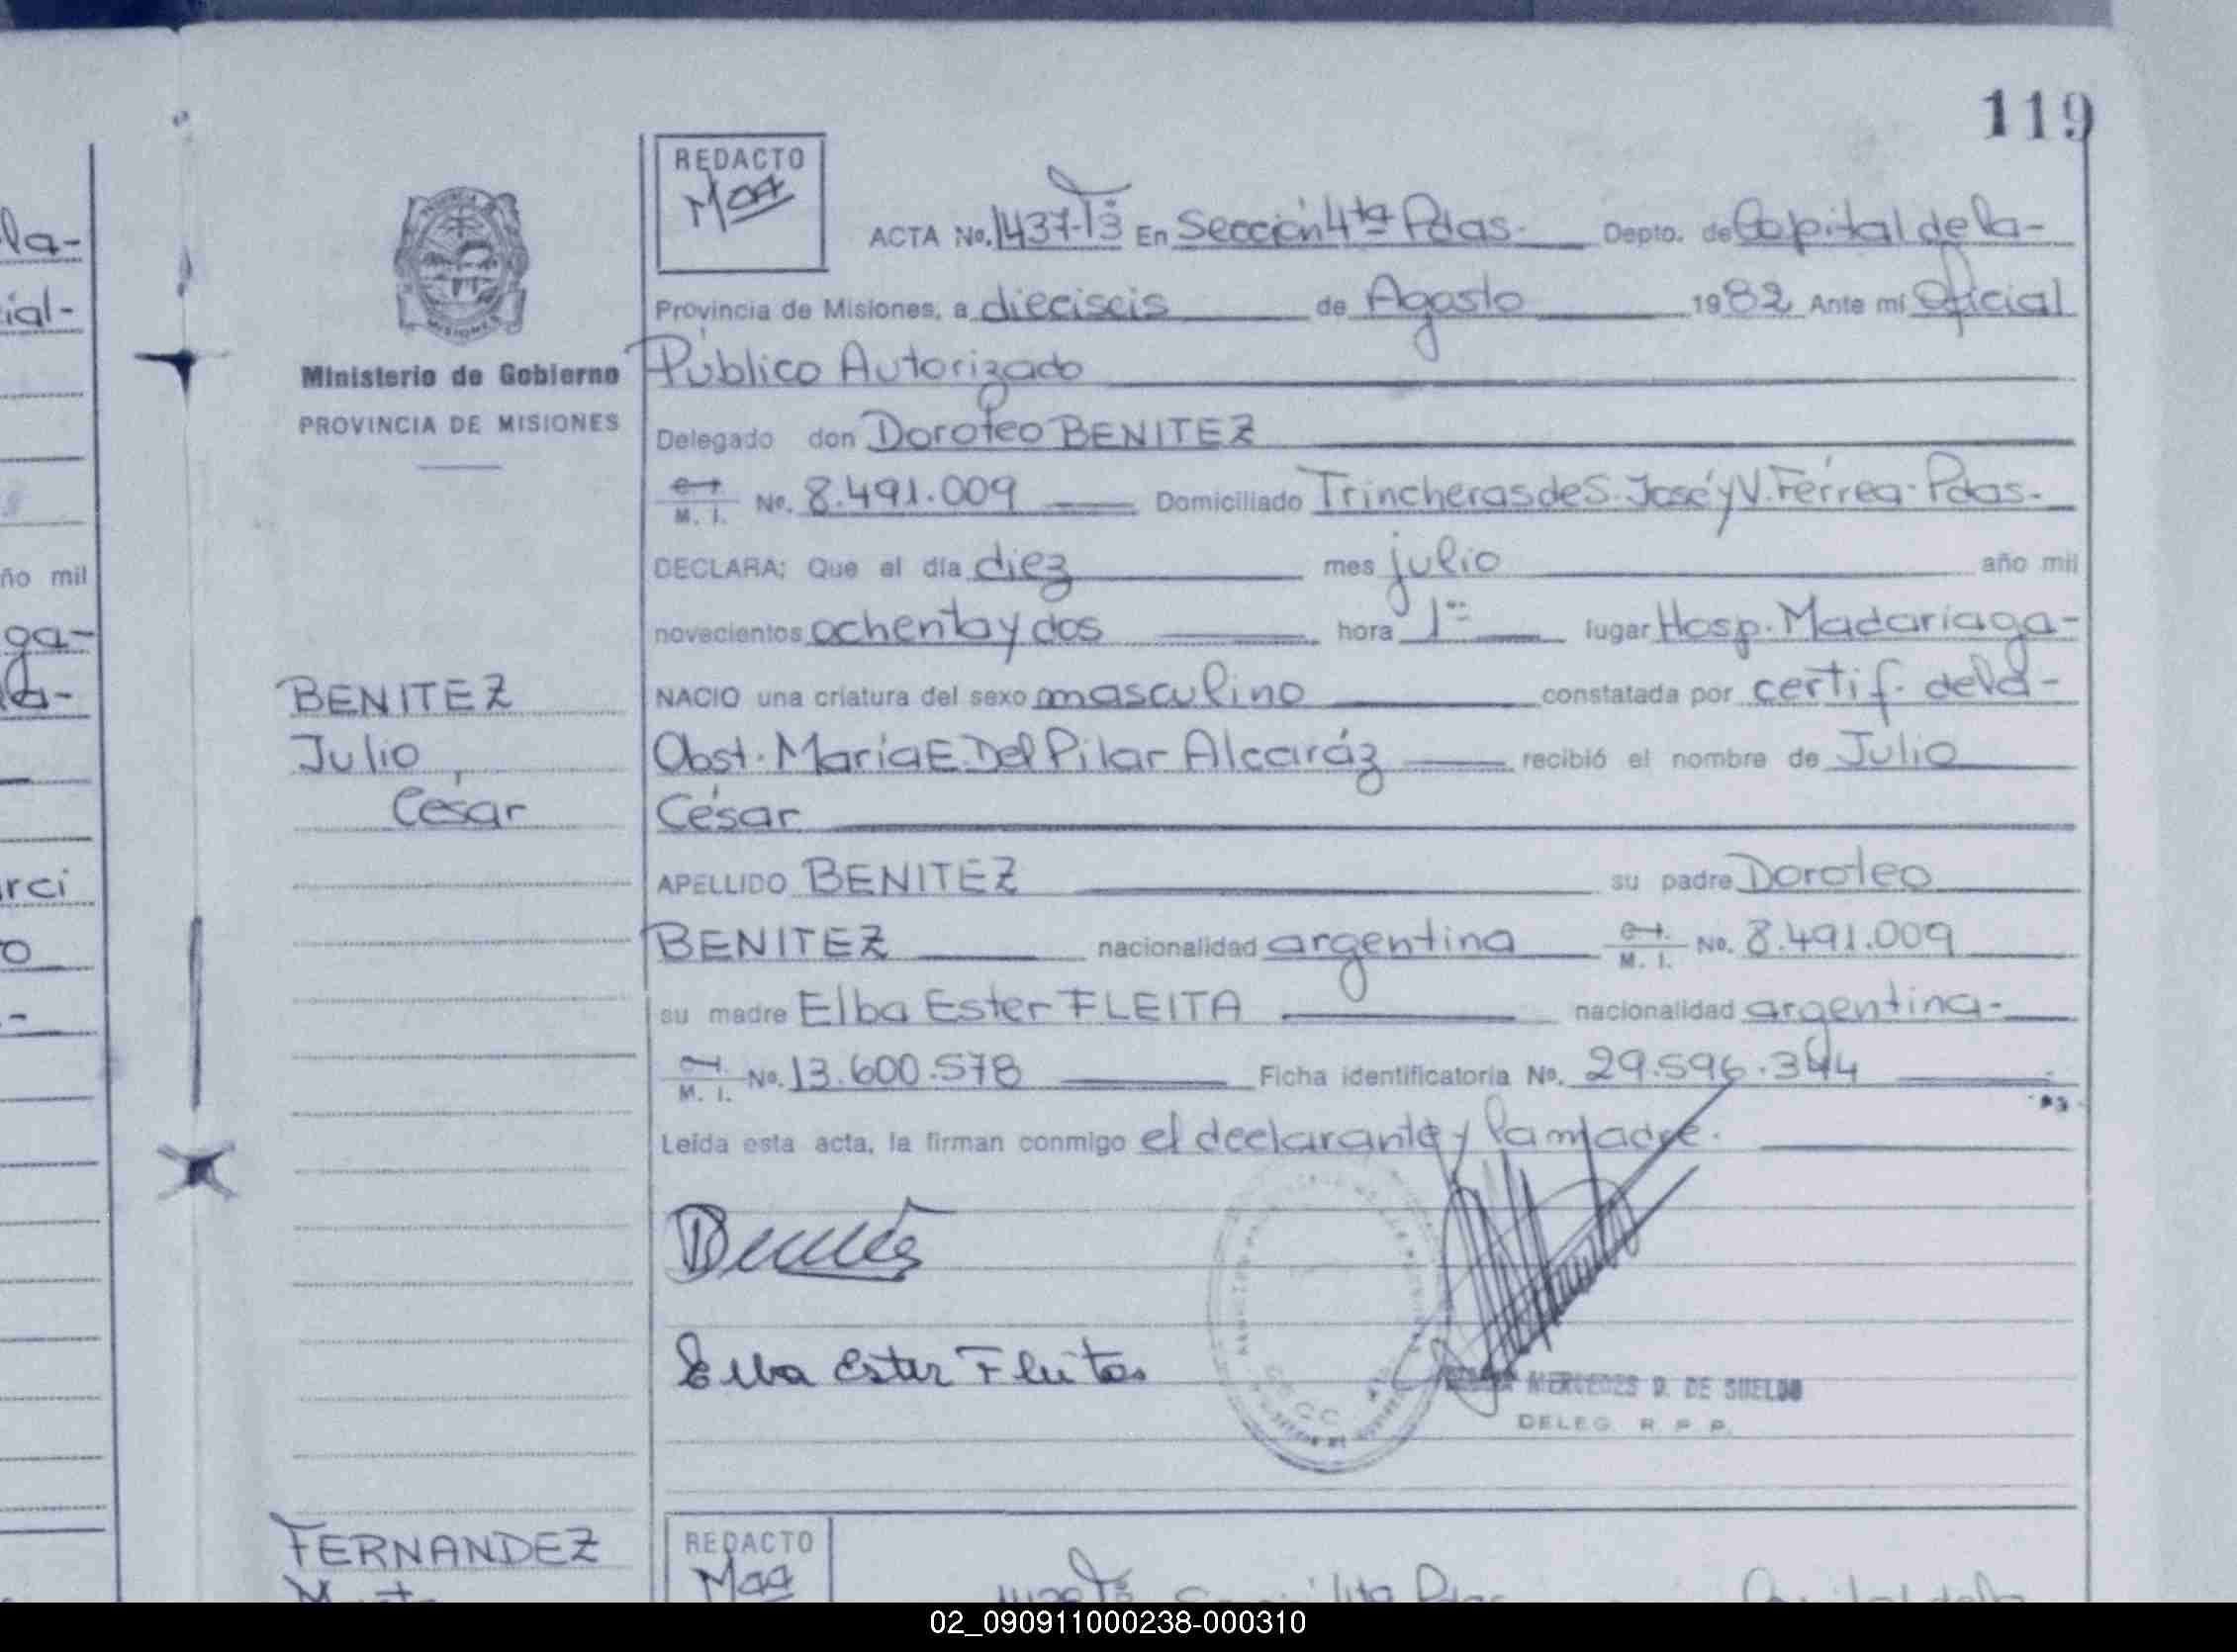 119
REDACTO
Maa
ACTA No. 1437-Tº3 En Sección 4ta Pdas. Depto. de Capital de la-
Provincia de Misiones, a dieciseis de Agosto 1982 Ante mí Oficial
Ministerio de Gobierno
PROVINCIA DE MISIONES
Público Autorizado
Delegado don Doroteo BENITEZ
M. I. No. 8.491.009 Domiciliado Trincheras de S. José y V. Férrea-Pdas.
DECLARA: Que el día diez mes julio año mil
novecientos ochenta y dos hora 1 lugar Hosp. Madariaga-
BENITEZ
Julio
César
NACIO una criatura del sexo masculino constatada por certif. de la-
Obst. María E. Del Pilar Alcaráz recibió el nombre de Julio
César
APELLIDO BENITEZ su padre Doroteo
BENITEZ nacionalidad argentina M. I. No. 8.491.009
su madre Elba Ester FLEITA nacionalidad argentina-
M. I. No. 13.600.578 Ficha identificatoria No. 29.596.344
Leída esta acta, la firman conmigo el declarante y la madre.
Elba Ester Fleitas
MERCEDES D. DE SUELDO
DELEG. R. P. P.
FERNANDEZ
REDACTO
Maa
la-
ial-
ño mil
ga-
la-
rci
o
02_090911000238-000310